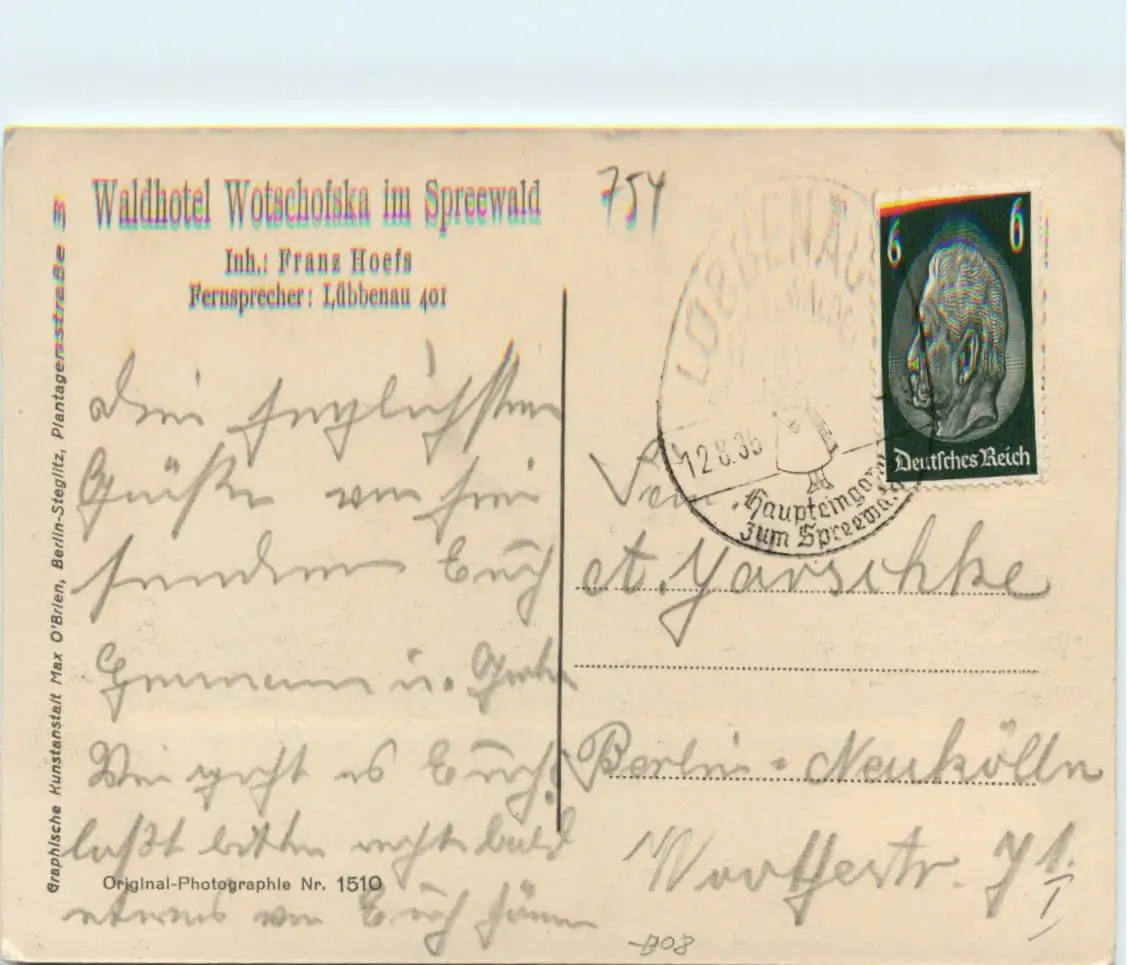 Waldhotel Wotschofska im Spreewald
Inh.: Franz Hoefs
Fernsprecher: Lübbenau 401
754
Die herzlichsten
Grüße von hier
senden Euch
u.
Wie geht es Euch?
laßt bitte recht bald
etwas von Euch hören
Original-Photographie Nr. 1510
Graphische Kunstanstalt Max O'Brien, Berlin-Steglitz, Plantagenstraße 3
LÜBBENAU
12.8.35
Haupteingang
zum Spreewald
6 6
Deutsches Reich
Fam.
A. Jarschke
Berlin-Neukölln
71.
I